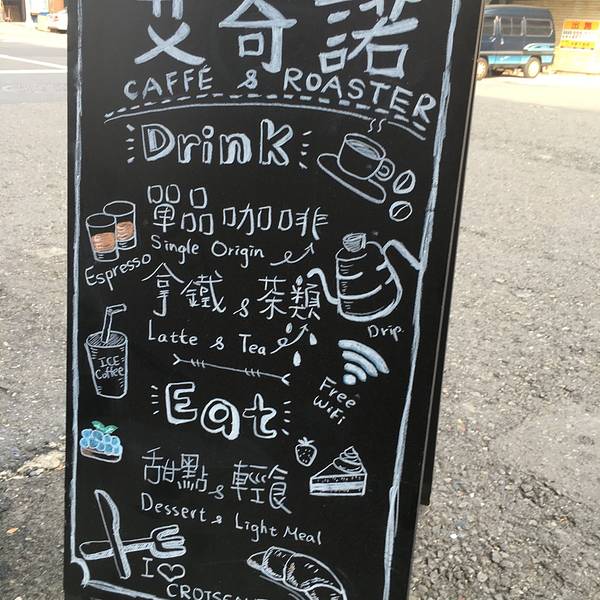 艾奇諾
CAFFÉ & ROASTER
Drink
單品咖啡
Single Origin
Espresso
拿鐵 & 茶類
Latte & Tea
Drip
ICE
Coffee
Free
WiFi
Eat
甜點 & 輕食
Dessert & Light Meal
I ♡